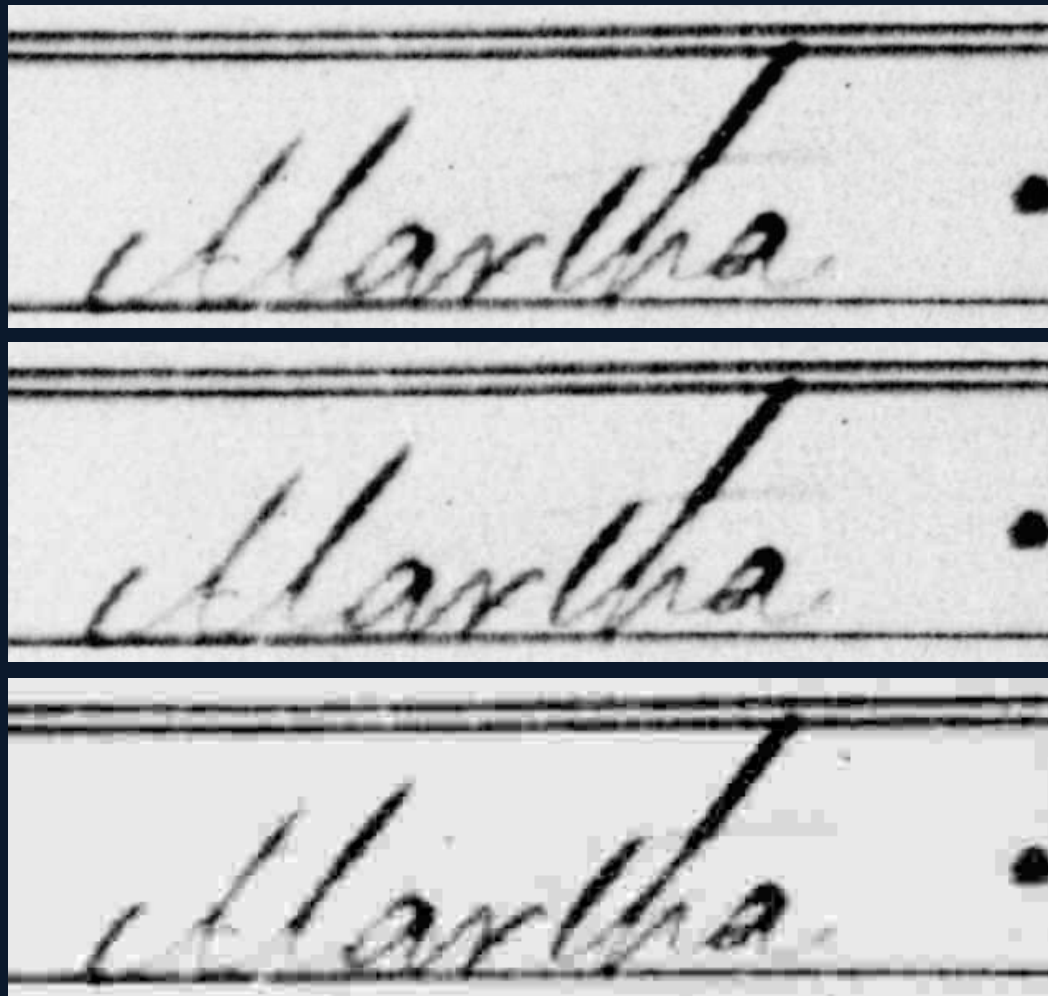 Martha
Martha
Martha